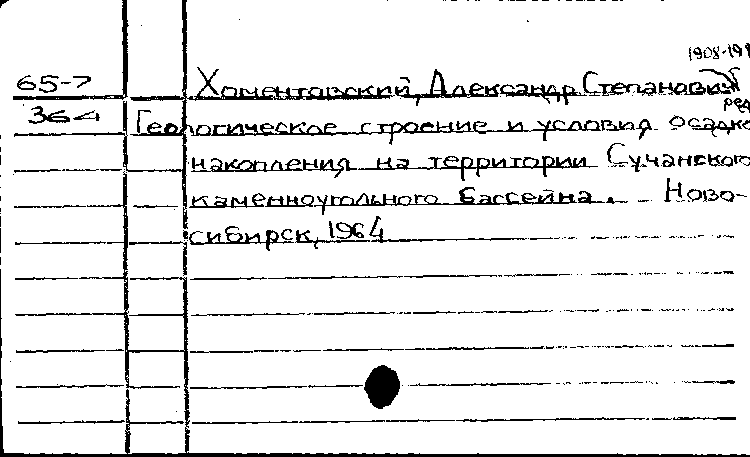 1908-19
65-7 Хоментовский, Александр Степанович
ред
364 Геологическое строение и условия осадко
накопления на территории Сучанского
каменноугольного бассейна. Ново-
сибирск, 1964